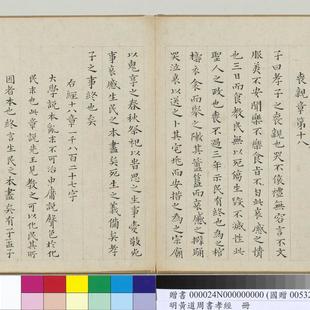 喪親章第十八
子曰孝子之喪親也哭不偯禮無容言不文
服美不安聞樂不樂食旨不甘此哀慼之情
也三日而食教民無以死傷生毀不滅性此
聖人之政也喪不過三年示民有終也為之棺
槨衣衾而舉之陳其簠簋而哀慼之擗踊
哭泣哀以送之卜其宅兆而安措之為之宗廟
以鬼享之春秋祭祀以旹思之生事愛敬死
事哀慼生民之本盡矣死生之義備矣孝
子之事終也矣
右經十八章一千八百二十七字
大學說本亂末不可治中庸說聲色於化
民末也此章說先王見教之可以化民其所
因者本也終言生民之本盡矣有子
贈書 000024N000000000 (國贈 00532
明黃道周書孝經 冊